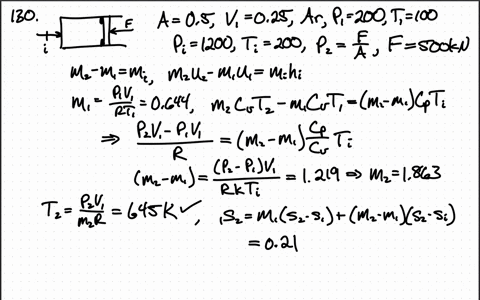 130. A = 0.5, V₁ = 0.25, Ar, P₁ = 200, T₁ = 100
i F Pi = 1200, Ti = 200, P₂ = F/A, F = 500kN
m₂ - m₁ = mi, m₂u₂ - m₁u₁ = mihi
m₁ = P₁V₁/RT₁ = 0.644, m₂CvT₂ - m₁CvT₁ = (m₂ - m₁)CpTi
⇒ P₂V₁ - P₁V₁/R = (m₂ - m₁) Cp/Cv Ti
(m₂ - m₁) = (P₂ - P₁)V₁/RkTi = 1.219 ⇒ m₂ = 1.863
T₂ = P₂V₁/m₂R = 645K ✓, ₁S₂ = m₁(s₂ - s₁) + (m₂ - m₁)(s₂ - si)
= 0.21